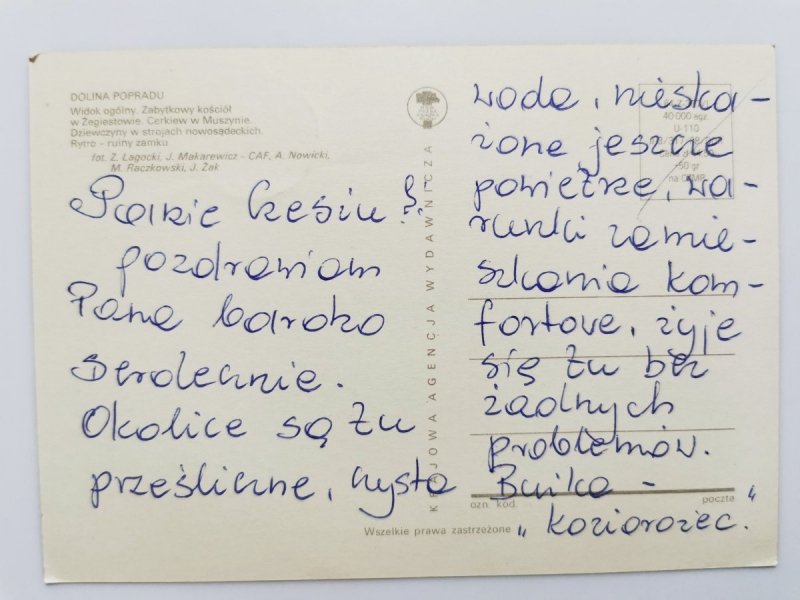 DOLINA POPRADU
Widok ogólny. Zabytkowy kościół
w Żegiestowie. Cerkiew w Muszynie.
Dziewczyny w strojach nowosądeckich.
Rytro - ruiny zamku
fot. Z. Łagocki, J. Makarewicz - CAF, A. Nowicki,
M. Raczkowski, J. Żak
Panie Czesiu!
pozdrawiam
Pana bardzo
serdecznie.
Okolice są tu
prześliczne, czysta
KRAJOWA AGENCJA WYDAWNICZA
woda, nieska-
żone jeszcze
powietrze, wa-
runki zamie-
szkania kom-
fortowe, żyje
się tu bez
żadnych
problemów.
"koziorożec."
40 000 egz.
U-110
ozn. kod.
poczta
Wszelkie prawa zastrzeżone